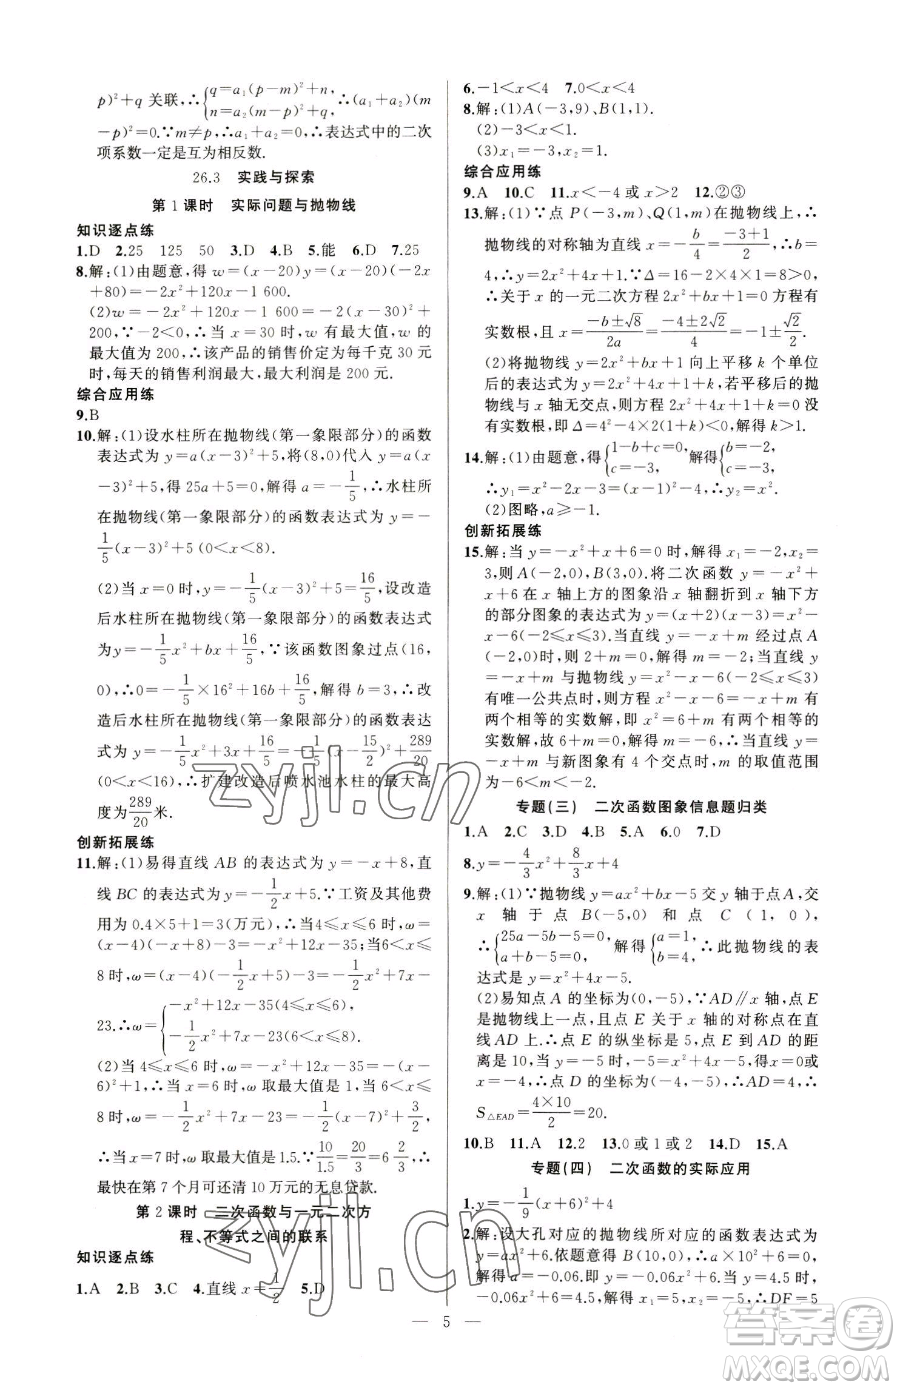 p)²+q 关联,∴{q=a₁(p-m)²+n, n=a₂(m-p)²+q, ∴(a₁+a₂)(m
-p)²=0.∵m≠p,∴a₁+a₂=0.∴表达式中的二次
项系数一定是互为相反数.
26.3 实践与探索
第1课时 实际问题与抛物线
知识逐点练
1.D 2.25 125 50 3.D 4.B 5.能 6.D 7.25
8.解:(1)由题意,得 w=(x-20)y=(x-20)(-2x
+80)=-2x²+120x-1 600.
(2)w=-2x²+120x-1 600=-2(x-30)²+
200,∵-2<0,∴当 x=30时,w 有最大值,w 的
最大值为 200,∴该产品的销售价定为每千克 30 元
时,每天的销售利润最大,最大利润是 200 元.
综合应用练
9.B
10.解:(1)设水柱所在抛物线(第一象限部分)的函数
表达式为 y=a(x-3)²+5,将(8,0)代入 y=a(x
-3)²+5,得 25a+5=0,解得 a=-1/5,∴水柱所
在抛物线(第一象限部分)的函数表达式为 y=-
1/5(x-3)²+5(0<x<8).
(2)当 x=0 时,y=-1/5(x-3)²+5=16/5,设改造
后水柱所在抛物线(第一象限部分)的函数表达式
为y=-1/5x²+bx+16/5,∵该函数图象过点(16,
0),∴0=-1/5×16²+16b+16/5,解得 b=3,∴改
造后水柱所在抛物线(第一象限部分)的函数表达
式为 y=-1/5x²+3x+16/5=-1/5(x-15/2)²+289/20
(0<x<16),∴扩建改造后喷水池水柱的最大高
度为289/20米.
创新拓展练
11.解:(1)易得直线 AB 的表达式为 y=-x+8,直
线 BC 的表达式为 y=-1/2x+5.∵工资及其他费
用为 0.4×5+1=3(万元),∴当4≤x≤6 时,ω=
(x-4)(-x+8)-3=-x²+12x-35.当 6≤x≤
8 时,ω=(x-4)(-1/2x+5)-3=-1/2x²+7x-
23.∴ω={-x²+12x-35(4≤x≤6), -1/2x²+7x-23(6≤x≤8).
(2)当 4≤x≤6 时,ω=-x²+12x-35=-(x-
6)²+1,∴当 x=6 时,ω取最大值是 1.当 6≤x≤
8 时,ω=-1/2x²+7x-23=-1/2(x-7)²+3/2,∴
当 x=7 时,ω取最大值是 1.5.∵10/1.5=20/3=6 2/3,∴
最快在第 7 个月可还清 10 万元的无息贷款.
第2课时 二次函数与一元二次方
程、不等式之间的联系
知识逐点练
1.A 2.B 3.C 4.直线 x=1/2 5.D
6.-1<x<4 7.0<x<4
8.解:(1)A(-3,9)、B(1,1).
(2)-3<x<1.
(3)x₁=-3,x₂=1.
综合应用练
9.A 10.C 11.x<-4 或 x>2 12.②③
13.解:(1)∵点 P(-3,m)、Q(1,m)在抛物线上,∴
抛物线的对称轴为直线 x=-b/4=(-3+1)/2,∴b=
4,∴y=2x²+4x+1.∵Δ=16-2×4×1=8>0,
∴关于 x 的一元二次方程 2x²+bx+1=0 有
实数根,且 x=(-b±√8)/2a=(-4±2√2)/4=-1±√2/2.
(2)将抛物线 y=2x²+bx+1 向上平移 k 个单位
后的表达式为 y=2x²+4x+1+k,若平移后的抛
物线与 x 轴无交点,则方程 2x²+4x+1+k=0 没
有实数根,∴Δ=4²-4×2(1+k)<0,解得 k>1.
14.解:(1)由题意,得{1-b+c=0, c=-3, 解得{b=-2, c=-3.
∴y₁=x²-2x-3=(x-1)²-4,∴y₂=x².
(2)图略,a≥-1.
创新拓展练
15.解:当 y=-x²+x+6=0 时,解得 x₁=-2,x₂=
3,则 A(-2,0),B(3,0).将二次函数 y=-x²+
x+6 在 x 轴上方的图象沿 x 轴翻折到 x 轴下方
的部分图象的表达式为 y=(x+2)(x-3)=x²-
x-6(-2≤x≤3).当直线 y=-x+m 经过点 A
(-2,0)时,2+m=0,解得 m=-2;当直线 y=
-x+m 与抛物线 y=x²-x-6(-2≤x≤3)
有唯一公共点时,则方程 x²-x-6=-x+m 有
两个相等的实数解,即 x²=6+m 有两个相等的
实数解,故 6+m=0,解得 m=-6,∴当直线 y=
-x+m 与新图象有 4 个交点时,m 的取值范围
为-6<m<-2.
专题(三) 二次函数图象信息题归类
1.A 2.C 3.D 4.B 5.A 6.0 7.D
8.y=-4/3x²+8/3x+4
9.解:(1)∵抛物线 y=ax²+bx-5 交 y 轴于点A,交
x 轴于点 B(-5,0)和点 C(1,0),
∴{25a-5b-5=0, a+b-5=0, 解得{a=1, b=4, ∴此抛物线的表
达式是 y=x²+4x-5.
(2)易知点 A 的坐标为(0,-5),∵AD∥x 轴,点 E
是抛物线上一点,且点 E 关于 x 轴的对称点在直
线 AD 上.∴点 E 的纵坐标是 5,点 E 到 AD 的距
离是 10,当 y=-5 时,-5=x²+4x-5,得 x=0
或 x=-4,∴点 D 的坐标为(-4,-5),∴AD=4,∴
S△EAD=(4×10)/2=20.
10.B 11.A 12.2 13.0 或 1 或 2 14.D 15.A
专题(四) 二次函数的实际应用
1.y=-1/9(x+6)²+4
2.解:设大孔对应的抛物线所对应的函数表达式为
y=ax²+6.依题意得 B(10,0),∴a×10²+6=0,
解得 a=-0.06,即 y=-0.06x²+6.当 y=4.5 时,
-0.06x²+6=4.5,解得 x₁=5,x₂=-5,∴DF=5
5
zyjl.cn
zyjl.cn
答案圈
MXQE.COM